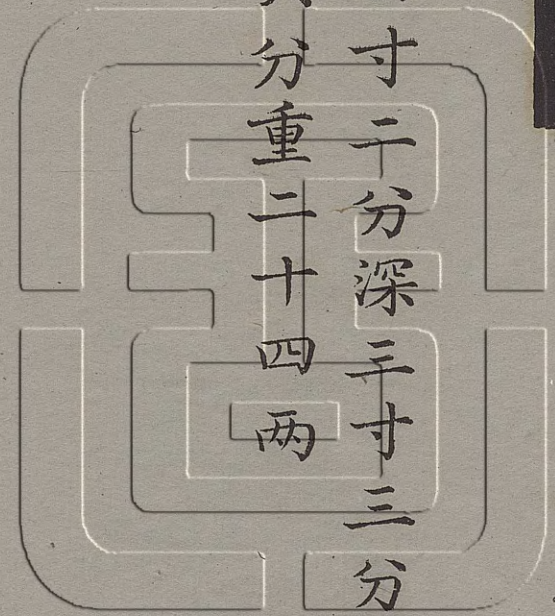 寸二分深三寸三分
分重二十四两